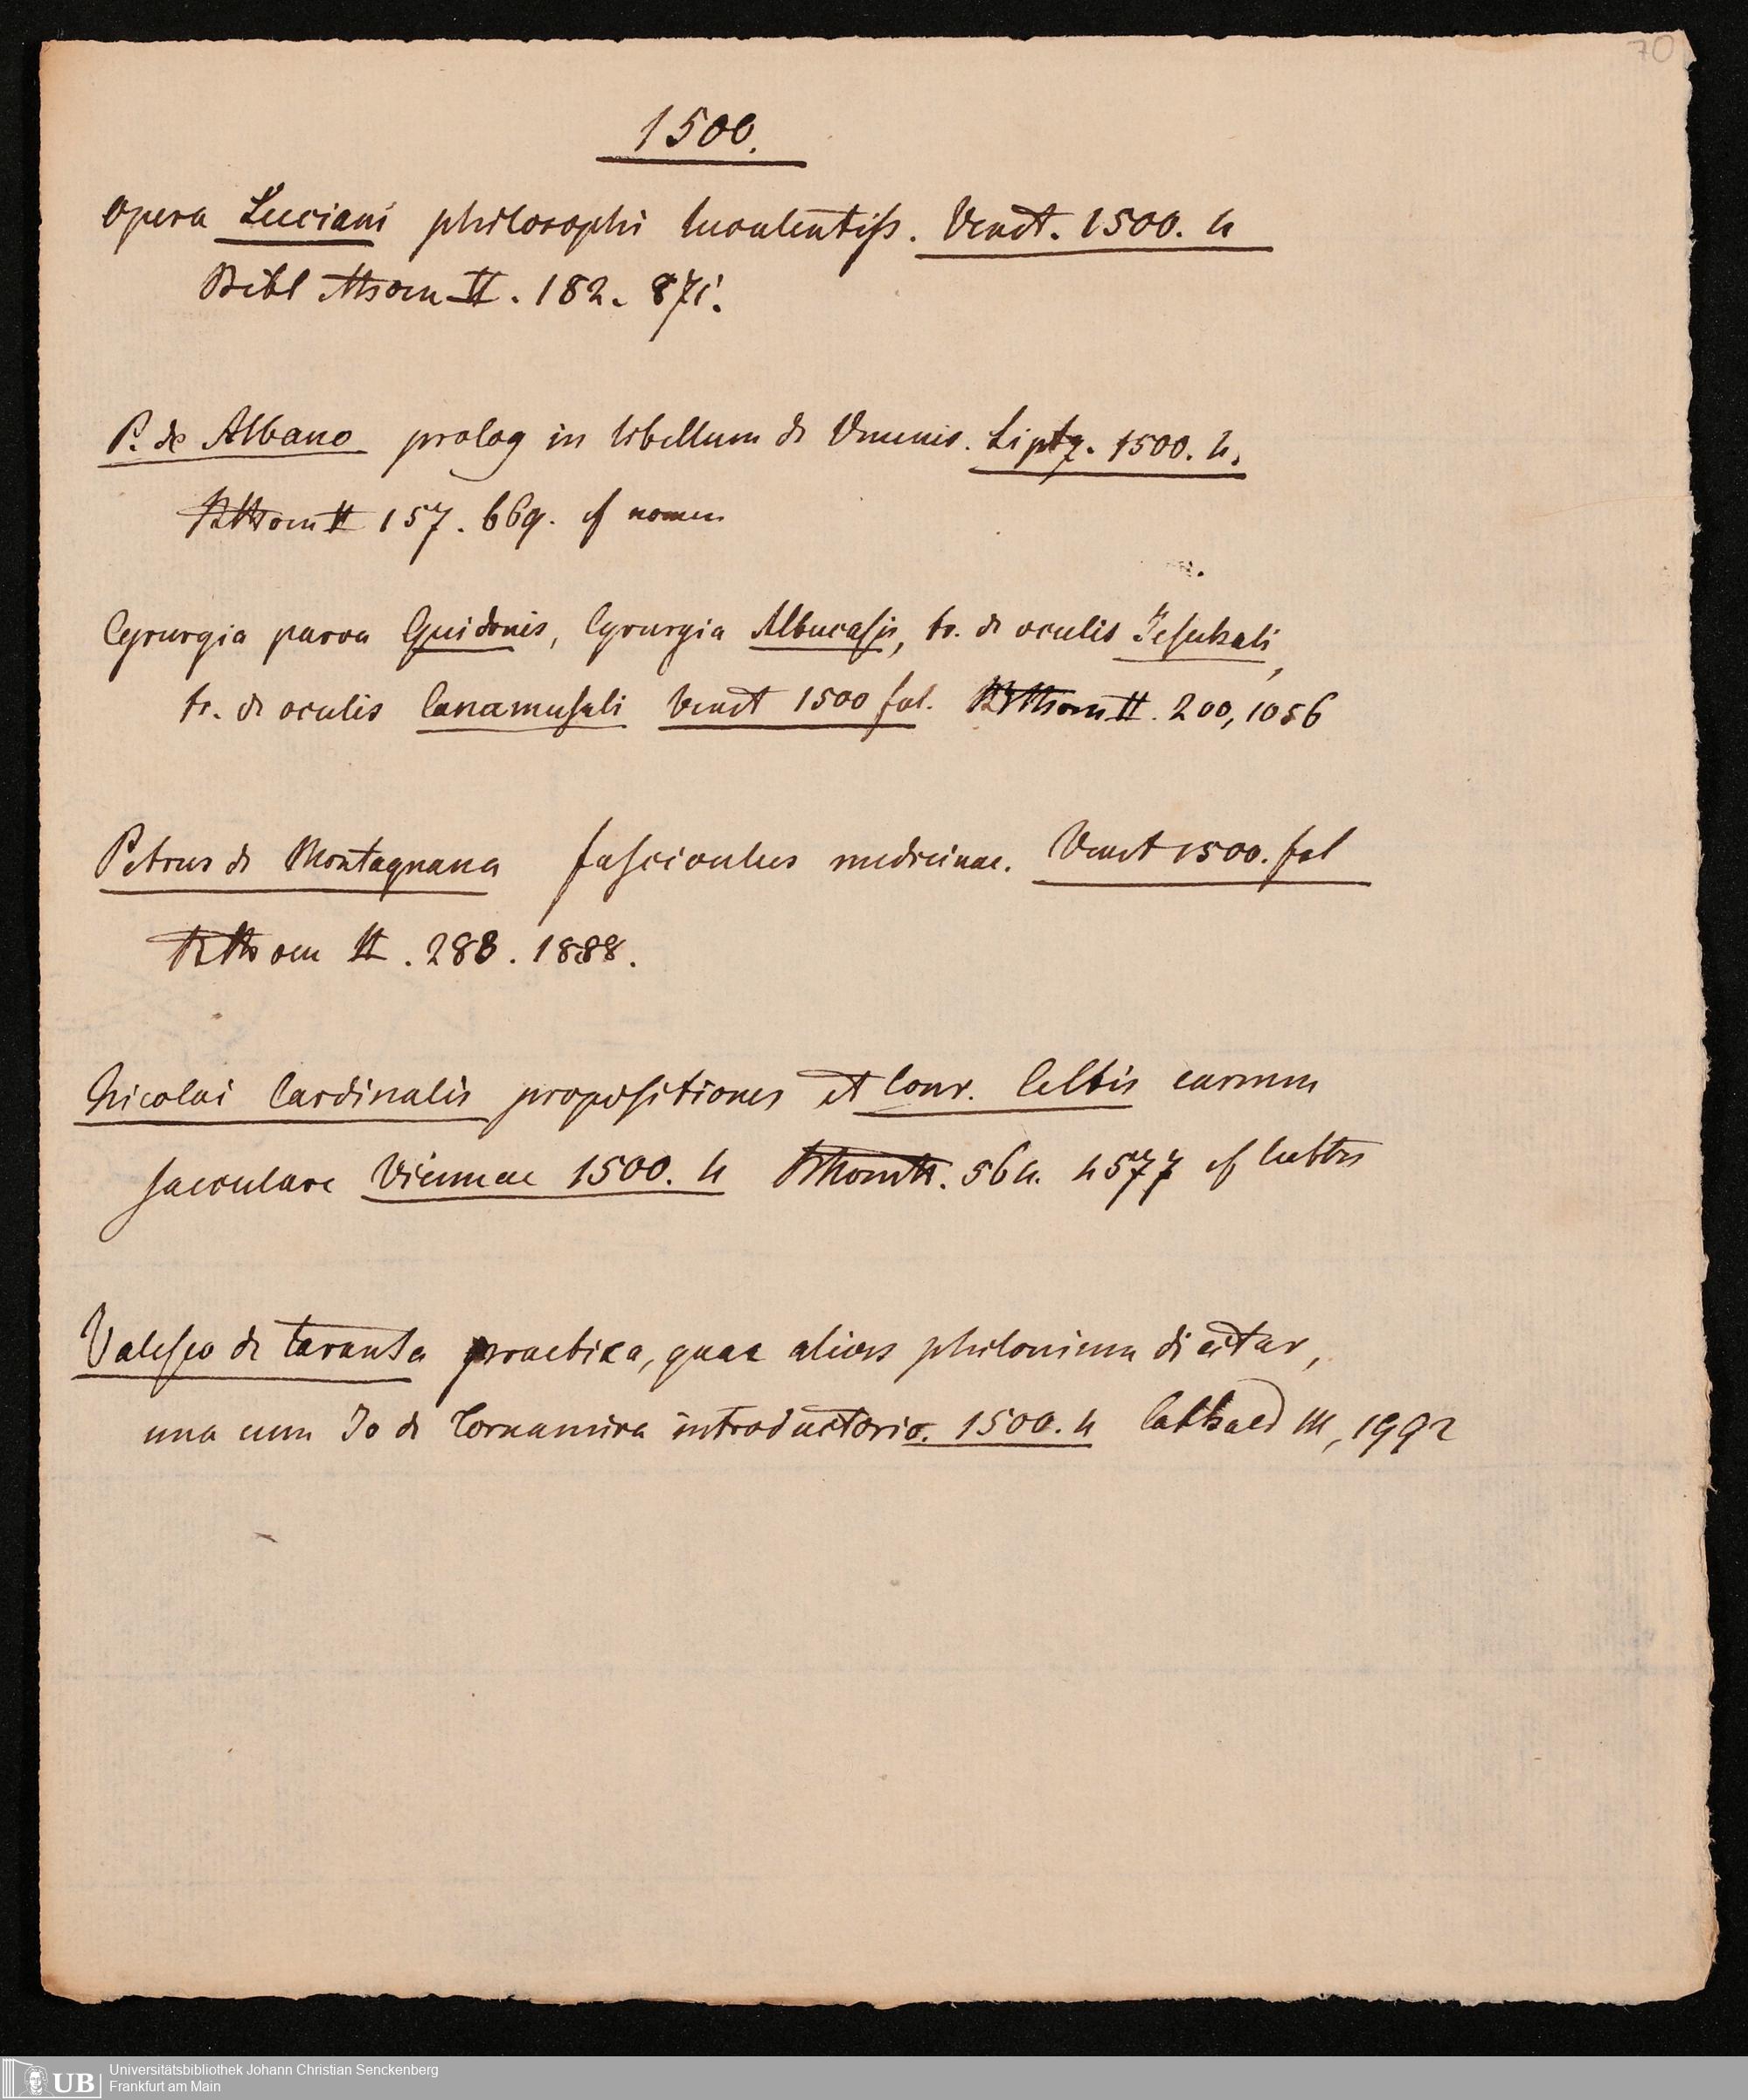 70
1500.
opera Luciani philosophi luculentiss. Venet. 1500. 4
Bibl Thom II. 182. 871.
P. de Albano prolog in libellum de Venenis. Liptz. 1500. 4.
BThom II 157. 669. cf nomen
Cyrurgia parva Guidonis, Cyrurgia Albucasis, tr. de oculis Jesuhali,
tr. de oculis Canamusali Venet 1500 fol. BThom II. 200, 1056
Petrus de Montagnana fasciculus medicinae. Venet 1500. fol
BThom II. 288. 1888.
Nicolai Cardinalis propositiones et Conr. Celtis carmen
saeculare Viennae 1500. 4 564. 4577 cf
Valesco de taranta practica, quae alias philonium dicitur,
una cum Jo de Tornamira introductorio. 1500. 4 III, 1992
UB Universitätsbibliothek Johann Christian Senckenberg
Frankfurt am Main